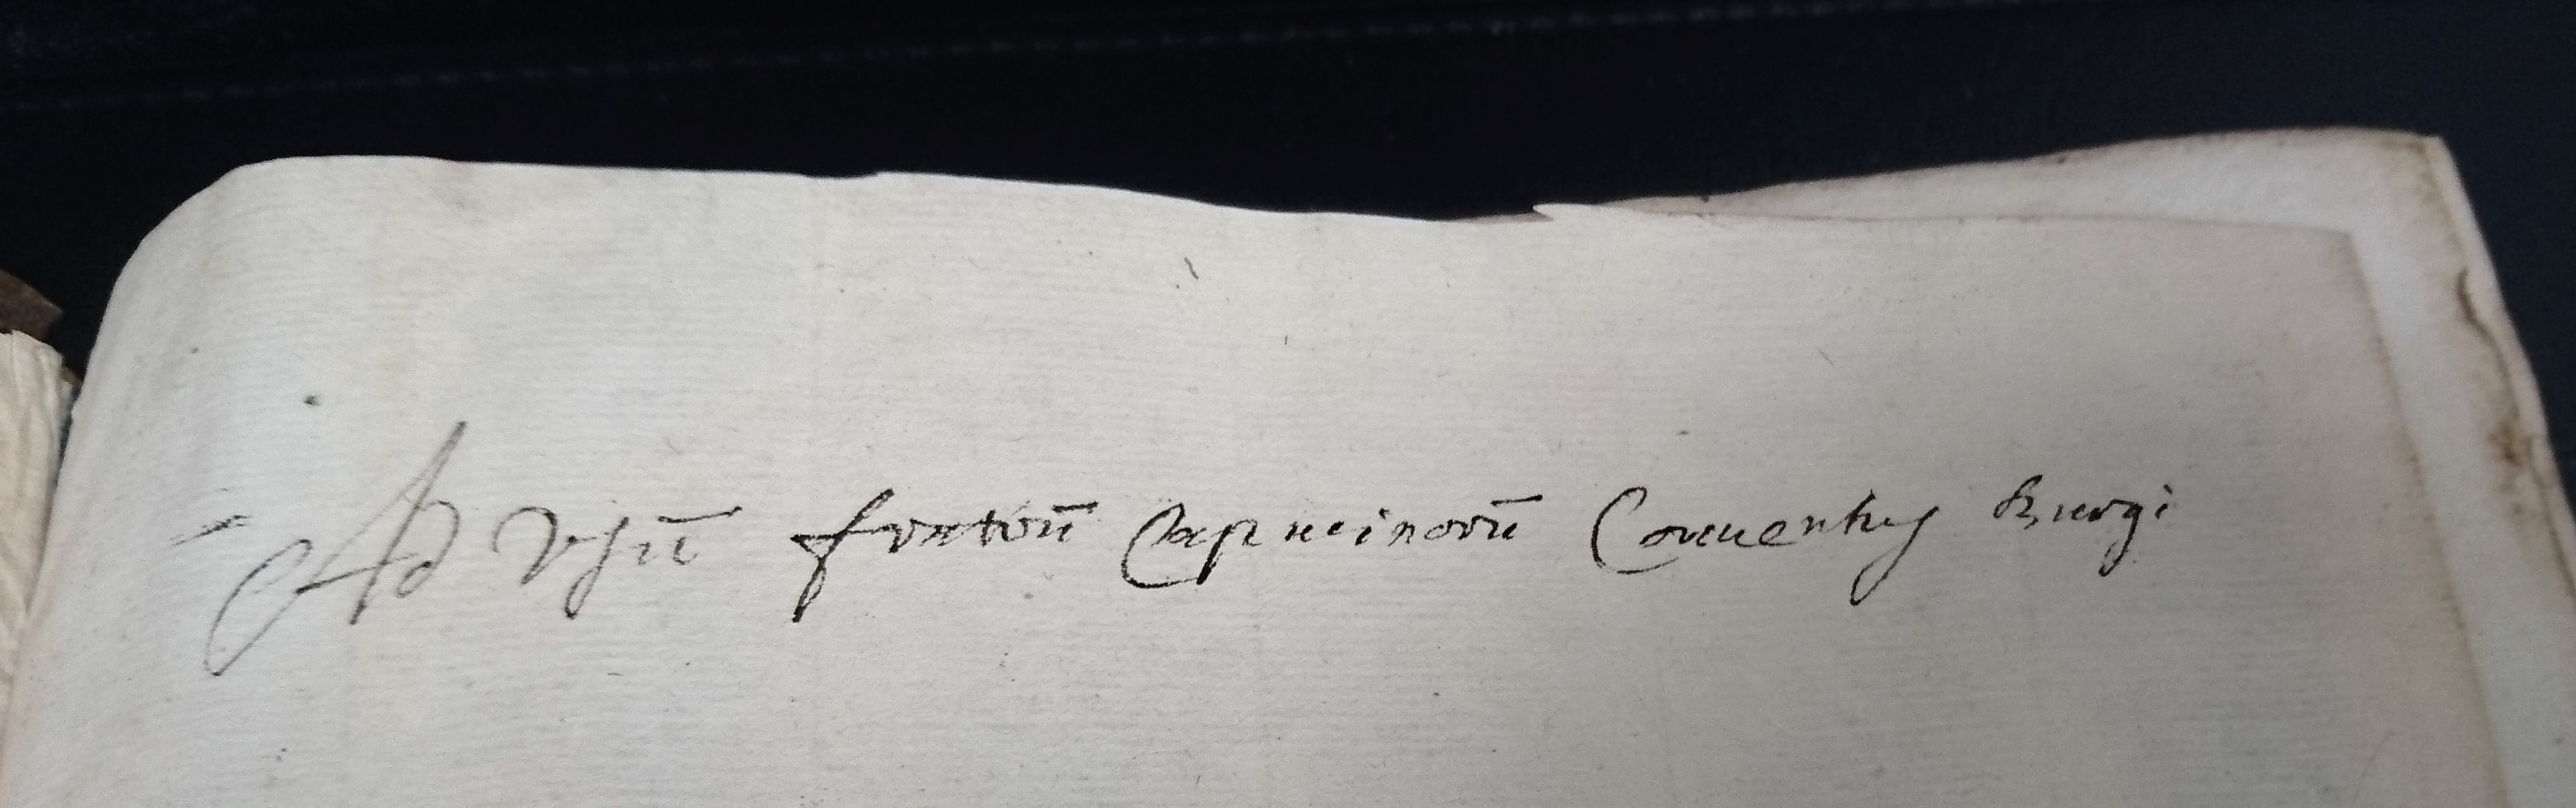 Ad Vsū fratrū Capucinorū Conuentus Burgi